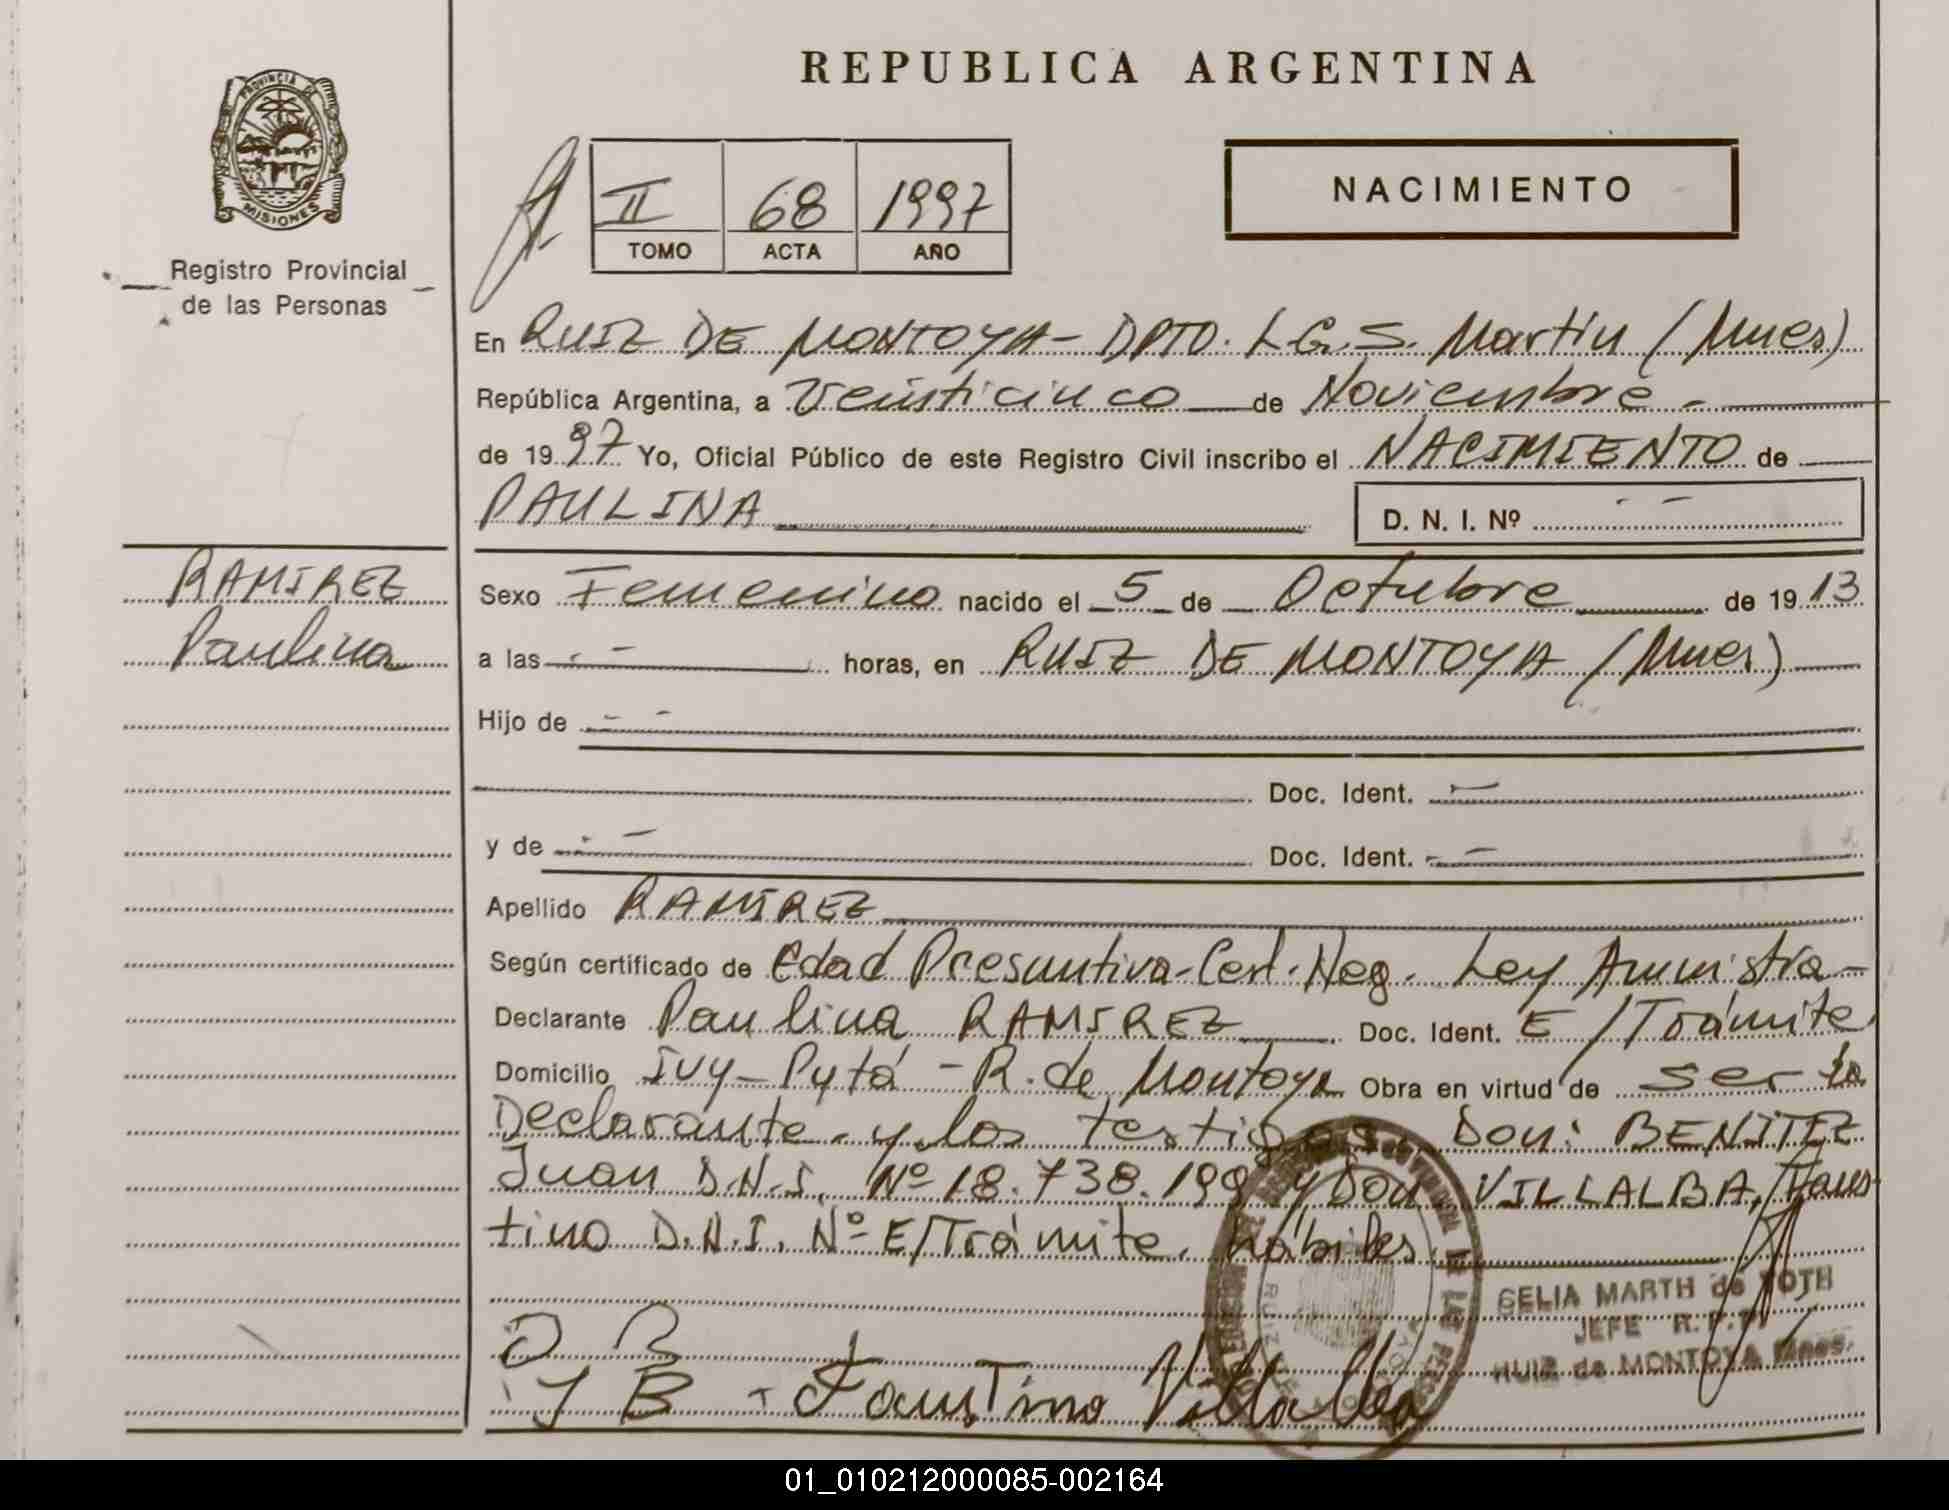 REPUBLICA ARGENTINA
PROVINCIA DE MISIONES
Registro Provincial
de las Personas
II 68 1997
TOMO ACTA AÑO
NACIMIENTO
En RUIZ DE MONTOYA - DPTO. L.G.S. Martin (Mnes)
República Argentina, a Veinticinco de Noviembre -
de 1997 Yo, Oficial Público de este Registro Civil inscribo el NACIMIENTO de
PAULINA
D. N. I. Nº - -
RAMIREZ
Paulina
Sexo Femenino nacido el 5 de Octubre de 1913
a las - - horas, en RUIZ DE MONTOYA (Mnes)
Hijo de - -
Doc. Ident. -
y de - - Doc. Ident. - -
Apellido RAMIREZ
Según certificado de Edad Presuntiva - Cert. Neg. Ley Amnistra -
Declarante Paulina RAMIREZ Doc. Ident. E/Trámite
Domicilio IVY - Pytá - R. de Montoya Obra en virtud de ser la
Declarante y los testigos Don: BENITEZ
Juan D.N.I. Nº 18.738.199 y Don VILLALBA, Faus-
tino D.N.I. Nº E/Trámite, hábiles
CELIA MARTH de TOTH
JEFE R.P.P.
RUIZ de MONTOYA Mnes.
J B - Faustino Villalba
01_010212000085-002164